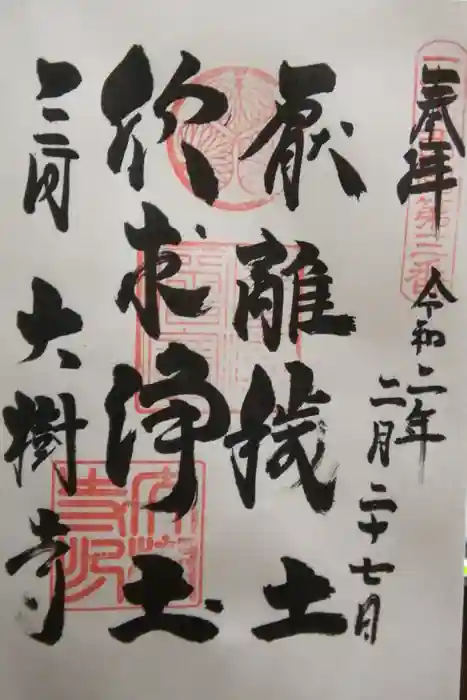 奉拝
令和二年
二月二十七日
厭離穢土
欣求浄土
三河 大樹寺
第三番